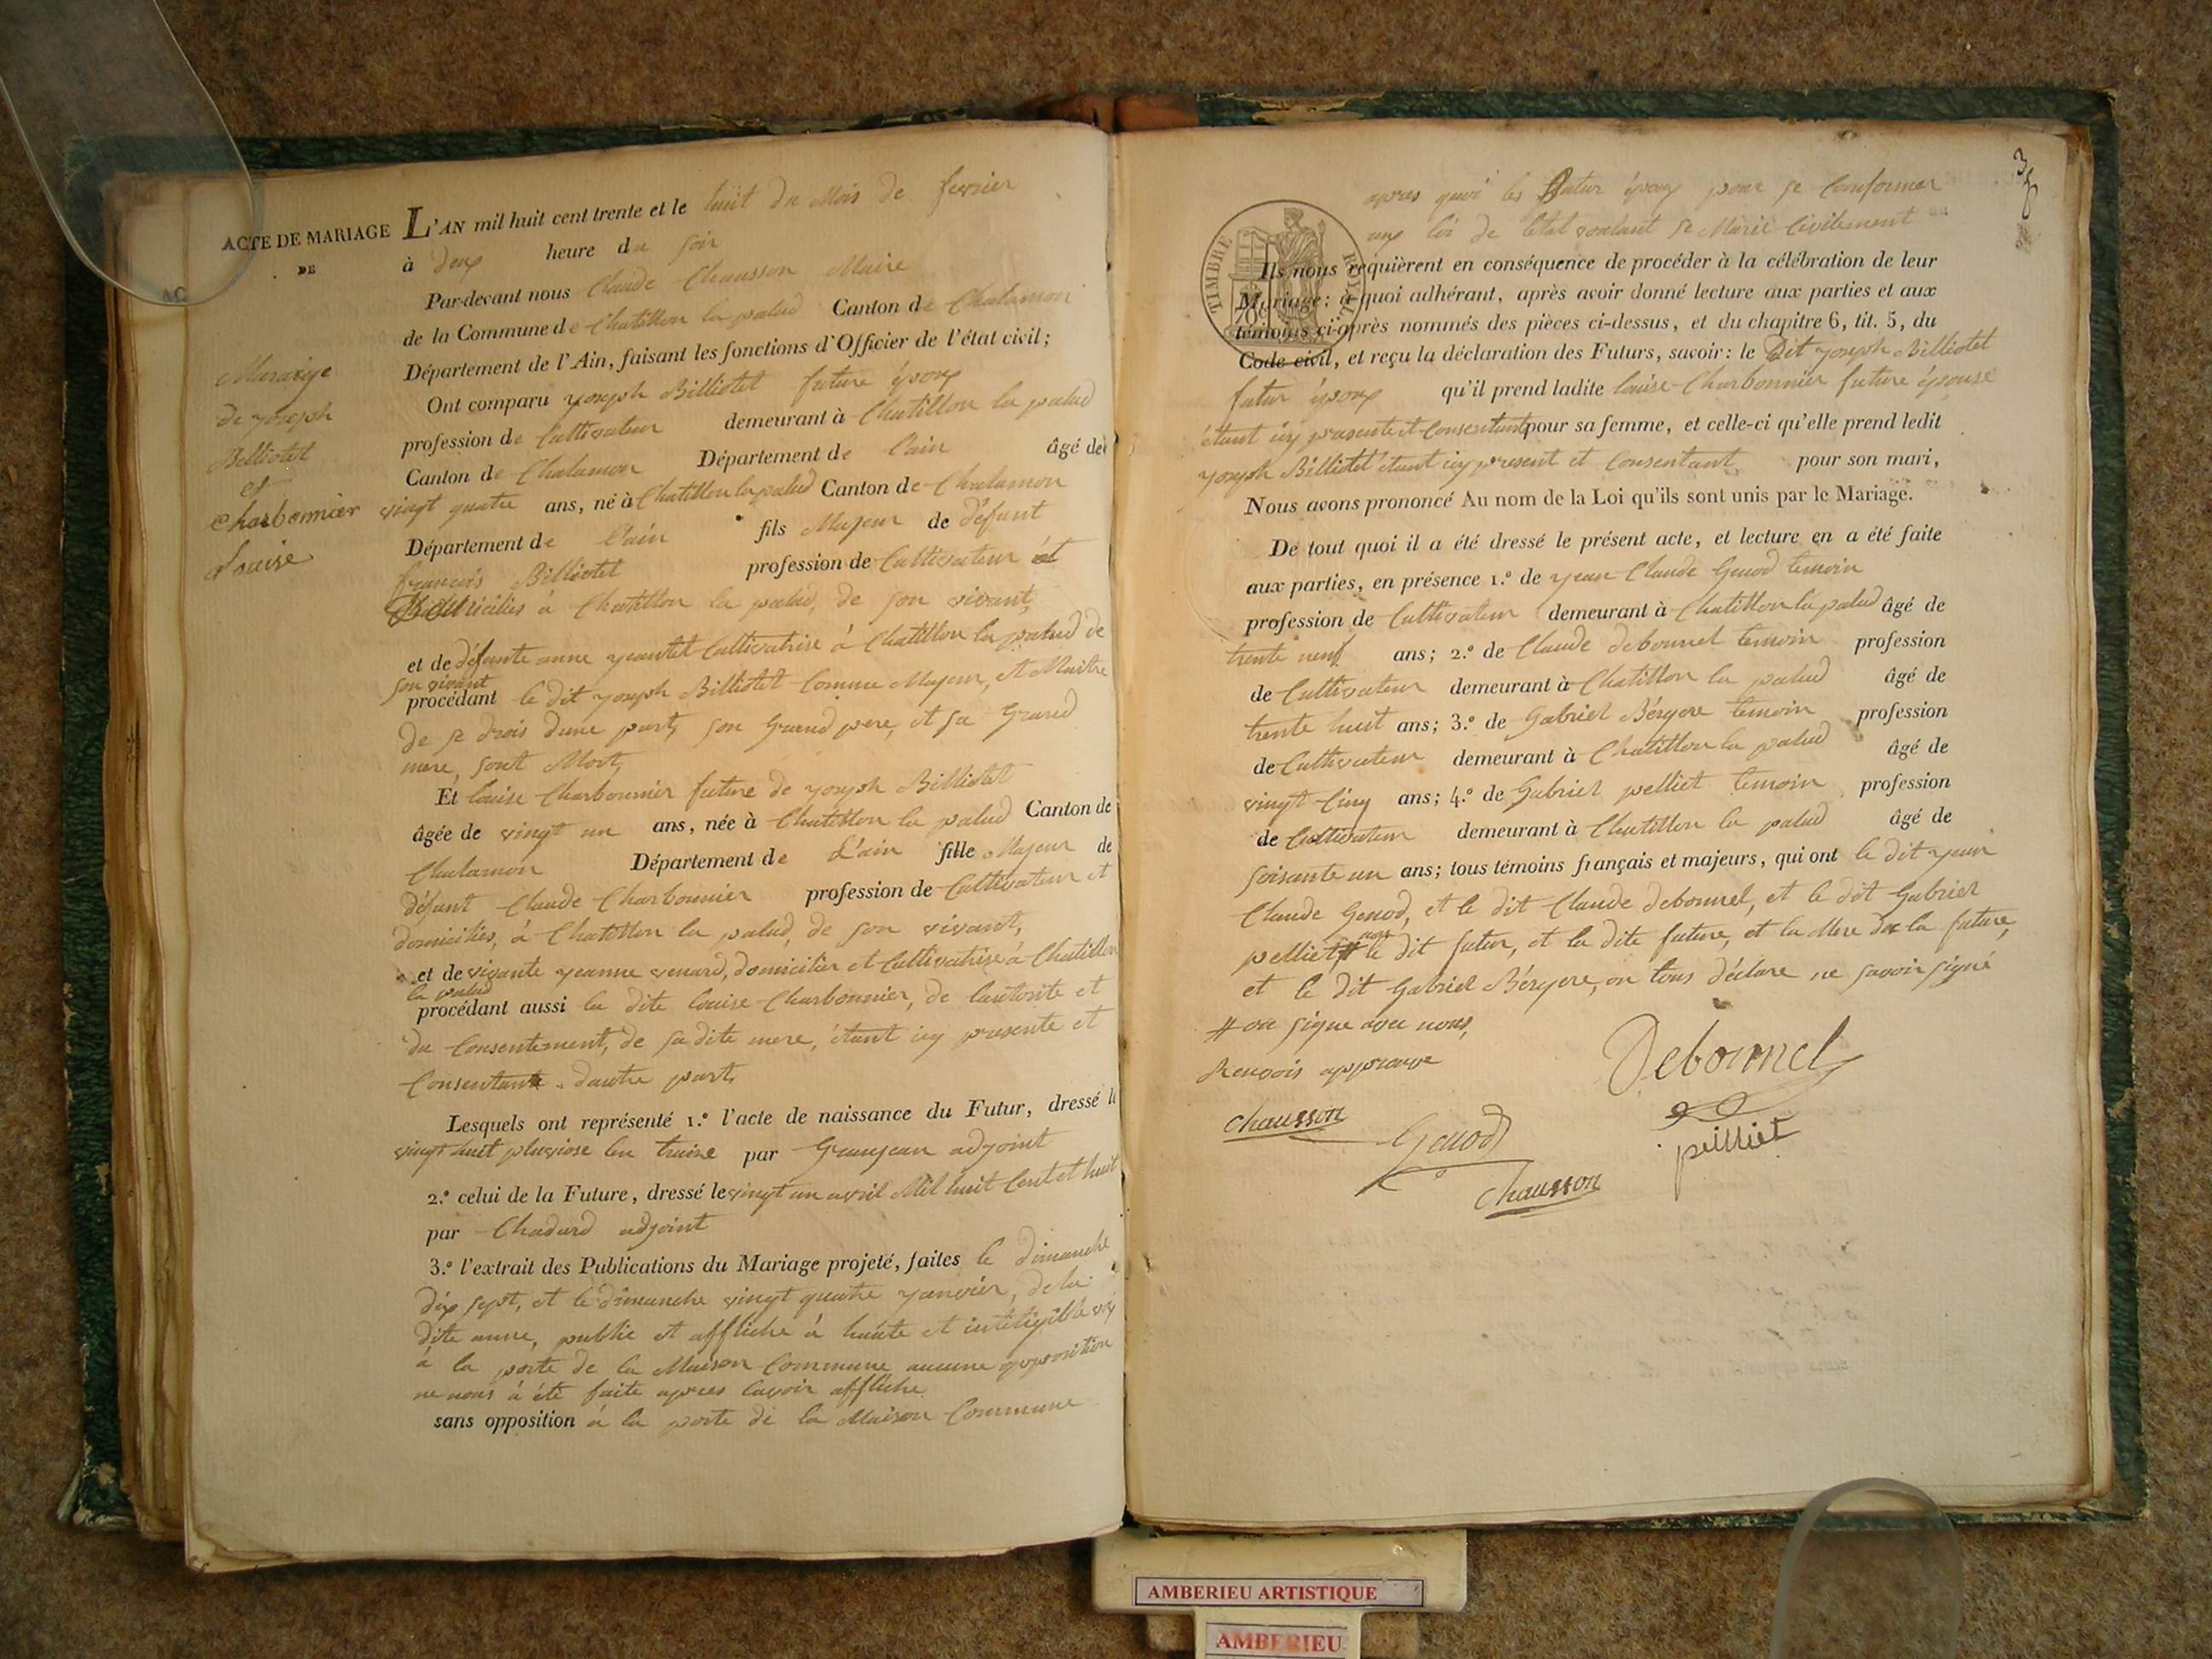 ACTE DE MARIAGE
DE
AC
Mariage
de yoseph
Billiotet
et
Charbonnier
Louise
L'AN mil huit cent trente et le huit du Mois de fevrier
à deux heure du soir
Par-devant nous Claude Chausson Maire
de la Commune de Chatillon la palud Canton de Chalamon
Département de l'Ain, faisant les fonctions d'Officier de l'état civil;
Ont comparu yoseph Billiotet future époux
profession de Cultivateur demeurant à Chatillon la palud
Canton de Chalamon Département de l'ain âgé de
vingt quatre ans, né à Chatillon la palud Canton de Chalamon
Département de l'ain fils Majeur de défunt
françois Billiotet profession de Cultivateur et
Domiciliés à Chatillon la palud, de son vivant,
et de défunte anne yeantet Cultivatrise à Chatillon la palud de
son vivant
procédant le dit yoseph Billiotet Comme Majeur, et Maitre
de se drois dune part, son Grand pere, et sa Grand
mere, sont Mort,
Et louise Charbonnier future de yoseph Billiotet
âgée de vingt un ans, née à Chatillon la palud Canton de
Chalamon Département de L'ain fille Majeur de
défunt Claude Charbonnier profession de Cultivateur et
domiciliés, à Chatillon la palud, de son vivant,
et de vivante yeanne venard, domicilier et Cultivatrise à Chatillon
la palud
procédant aussi la dite louise Charbonnier, de lautorite et
du Consentement, de sa dite mere, étant icy presente et
Consentant dautre part,
Lesquels ont représenté 1.º l'acte de naissance du Futur, dressé le
vingt huit pluviose lan traise par Granjean adjoint
2.º celui de la Future, dressé le vingt un avril Mil huit Cent et huit
par Chadard adjoint
3.º l'extrait des Publications du Mariage projeté, faites le dimanche
dix sept, et le dimanche vingt quatre yanvier, de la
dite anne, publie et affliche à haute et inteligible voy
à la porte de la Maison Commune aucune opposition
ne nous à été faite apres lavoir affliche
sans opposition à la porte de la Maison Commune
apres quoi les futur époux pour se Conformer
aux loi de letat voulant se Marié Civilement
TIMBRE ROYAL
Ils nous requièrent en conséquence de procéder à la célébration de leur
Mariage; à quoi adhérant, après avoir donné lecture aux parties et aux
témoins ci-après nommés des pièces ci-dessus, et du chapitre 6, tit. 5, du
Code civil, et reçu la déclaration des Futurs, savoir: le Dit yoseph Billiotet
futur époux qu'il prend ladite louise Charbonnier future épouse
étant icy presente et Consentant pour sa femme, et celle-ci qu'elle prend ledit
yoseph Billiotet étant icy present et Consentant pour son mari,
Nous avons prononcé Au nom de la Loi qu'ils sont unis par le Mariage.
De tout quoi il a été dressé le présent acte, et lecture en a été faite
aux parties, en présence 1.º de yean Claude Genod temoin
profession de Cultivateur demeurant à Chatillon la palud âgé de
trente neuf ans; 2.º de Claude debonnel temoin profession
de Cultivateur demeurant à Chatillon la palud âgé de
trente huit ans; 3.º de Gabriel Béryere temoin profession
de Cultivateur demeurant à Chatillon la palud âgé de
vingt Cinq ans; 4.º de Gabriel pelliet temoin profession
de Cultivateur demeurant à Chatillon la palud âgé de
soisante un ans; tous témoins français et majeurs, qui ont le dit yean
Claude Genod, et le dit Claude debonnel, et le dit Gabriel
pelliet, # le dit futur, et la dite future, et la Mere de la future,
et le dit Gabriel Béryere, on tous déclare ne savoir signé
# on signe avec nous,
Renvois approuve
Debonnel
chausson
Genod
pelliet
chausson
AMBERIEU ARTISTIQUE
AMBERIEU